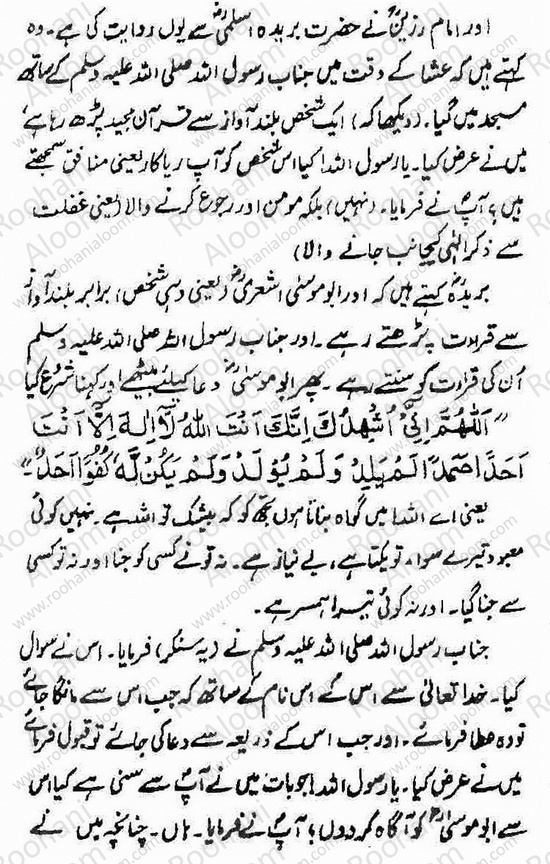 اور امام رزینؒ نے حضرت بریدہ اسلمیؓ سے یوں روایت کی ہے۔ وہ
کہتے ہیں کہ عشا کے وقت میں جناب رسول اللہ صلی اللہ علیہ وسلم کے ساتھ
مسجد میں گیا۔ (دیکھا کہ) ایک شخص بلند آواز سے قرآن مجید پڑھ رہا ہے
میں نے عرض کیا۔ یا رسول اللہ! کیا اس شخص کو آپ ریا کار یعنی منافق سمجھتے
ہیں؟ آپؐ نے فرمایا۔ (نہیں) بلکہ مومن اور رجوع کرنے والا (یعنی غفلت
سے ذکر الٰہی کیجانب جانے والا)
بریدہؓ کہتے ہیں کہ اور ابو موسیٰ اشعریؓ (یعنی وہی شخص) برابر بلند آواز
سے قراءت پڑھتے رہے۔ اور جناب رسول اللہ صلی اللہ علیہ وسلم
اُن کی قراءت کو سنتے رہے۔ پھر ابو موسیٰؓ دعا کیلئے بیٹھے اور کہنا شروع کیا
"اَللّٰهُمَّ اِنِّیْ اُشْهِدُكَ اِنَّكَ اَنْتَ اللهُ لَآ اِلٰهَ اِلَّآ اَنْتَ
اَحَدًا صَمَدًا لَمْ یَلِدْ وَلَمْ یُوْلَدْ وَلَمْ یَكُنْ لَّهٗ كُفُوًا اَحَدٌ"۔
یعنی اے اللہ! میں گواہ بناتا ہوں تجھ کو کہ بیشک تو اللہ ہے۔ نہیں کوئی
معبود تیرے سوا، تو یکتا ہے، بے نیاز ہے۔ نہ تو نے کسی کو جنا اور نہ تو کسی
سے جنا گیا۔ اور نہ کوئی تیرا ہمسر ہے۔
جناب رسول اللہ صلی اللہ علیہ وسلم نے (یہ سنکر) فرمایا۔ اس نے سوال
کیا۔ خدا تعالیٰ سے اس کے اس نام کے ساتھ کہ جب اس سے مانگا جائے
تو وہ عطا فرمائے۔ اور جب اس کے ذریعہ سے دعا کی جائے تو قبول فرمائے
میں نے عرض کیا۔ یا رسول اللہ! جو بات میں نے آپؐ سے سنی ہے کیا اس
سے ابو موسیٰؓ کو آگاہ کر دوں؟ آپؐ نے فرمایا۔ ہاں۔ چنانچہ میں نے
Roohani Aloom
www.roohanialoom.com